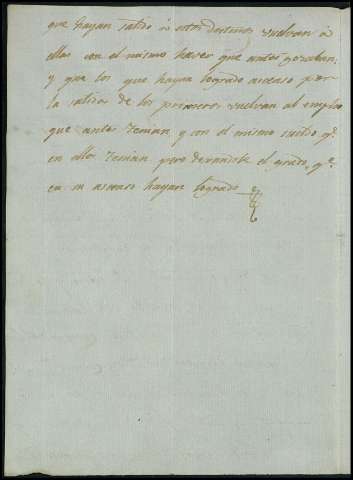 que hayan salido à estos destinos vuelvan à
ellas con el mismo haver que antes gozaban;
y que los que hayan logrado ascenso por
la salida de los primeros vuelvan al empleo
que antes tenian y con el mismo sueldo qe.
en ellos tenian, pero dexandole el grado, qe.
en su ascenso hayan logrado